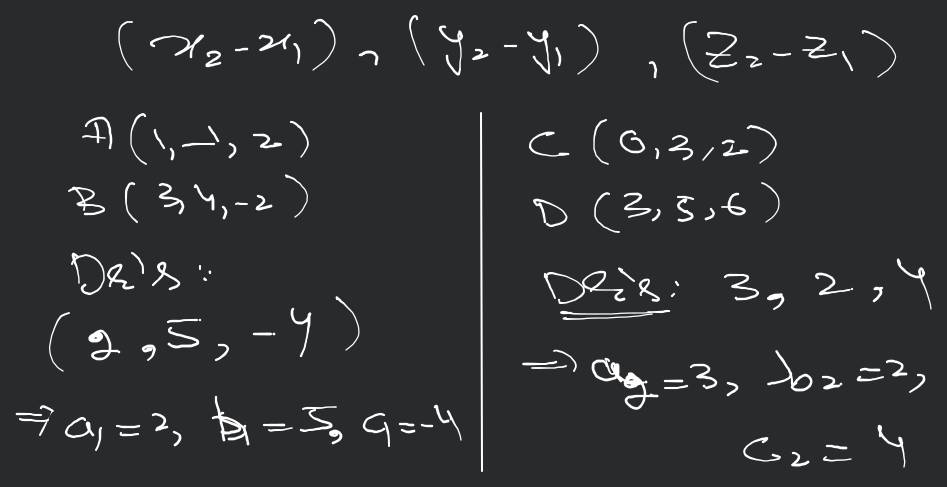 (x₂-x₁), (y₂-y₁), (z₂-z₁)
A(1,-1,2)
B(3,4,-2)
DR's:
(2,5,-4)
⇒ a₁=2, b₁=5, c₁=-4
C(0,3,2)
D(3,5,6)
DR's: 3, 2, 4
⇒ a₂=3, b₂=2,
c₂=4